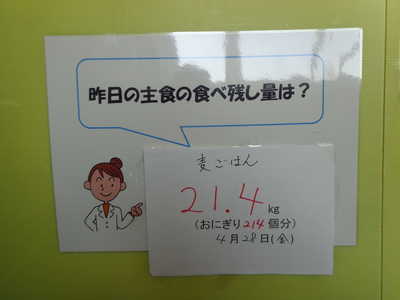 昨日の主食の食べ残し量は？
麦ごはん
21.4 kg
(おにぎり214個分)
4月28日(金)